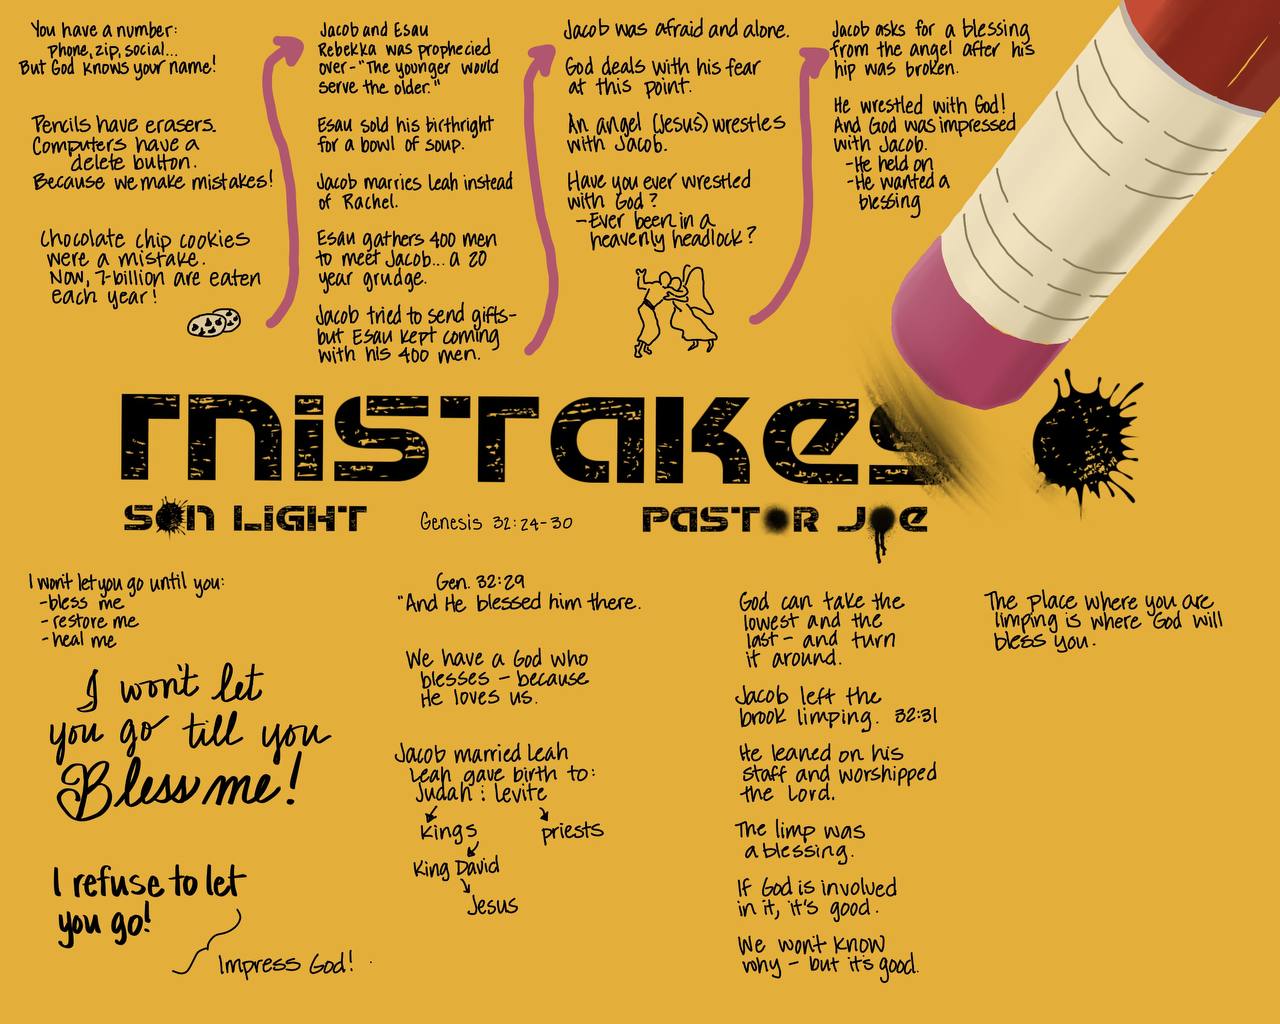 You have a number:
Phone, zip, social...
But God knows your name!
Pencils have erasers.
Computers have a
delete button.
Because we make mistakes!
Chocolate chip cookies
were a mistake.
Now, 7-billion are eaten
each year!
Jacob and Esau
Rebekka was prophecied
over-"The younger would
serve the older."
Esau sold his birthright
for a bowl of soup.
Jacob marries Leah instead
of Rachel.
Esau gathers 400 men
to meet Jacob... a 20
year grudge.
Jacob tried to send gifts-
but Esau kept coming
with his 400 men.
Jacob was afraid and alone.
God deals with his fear
at this point.
An angel (Jesus) wrestles
with Jacob.
Have you ever wrestled
with God?
-Ever been in a
heavenly headlock?
Jacob asks for a blessing
from the angel after his
hip was broken.
He wrestled with God!
And God was impressed
with Jacob.
-He held on
-He wanted a
blessing
mistakes
SON LIGHT
Genesis 32:24-30
PASTOR JOE
I won't let you go until you:
-bless me
-restore me
-heal me
I won't let
you go till you
Bless me!
I refuse to let
you go!
Impress God!
Gen. 32:29
"And He blessed him there.
We have a God who
blesses - because
He loves us.
Jacob married Leah
Leah gave birth to:
Judah : Levite
Kings
priests
King David
Jesus
God can take the
lowest and the
last - and turn
it around.
Jacob left the
brook limping. 32:31
He leaned on his
staff and worshipped
the Lord.
The limp was
a blessing.
If God is involved
in it, it's good.
We won't know
why - but it's good.
The place where you are
limping is where God will
bless you.